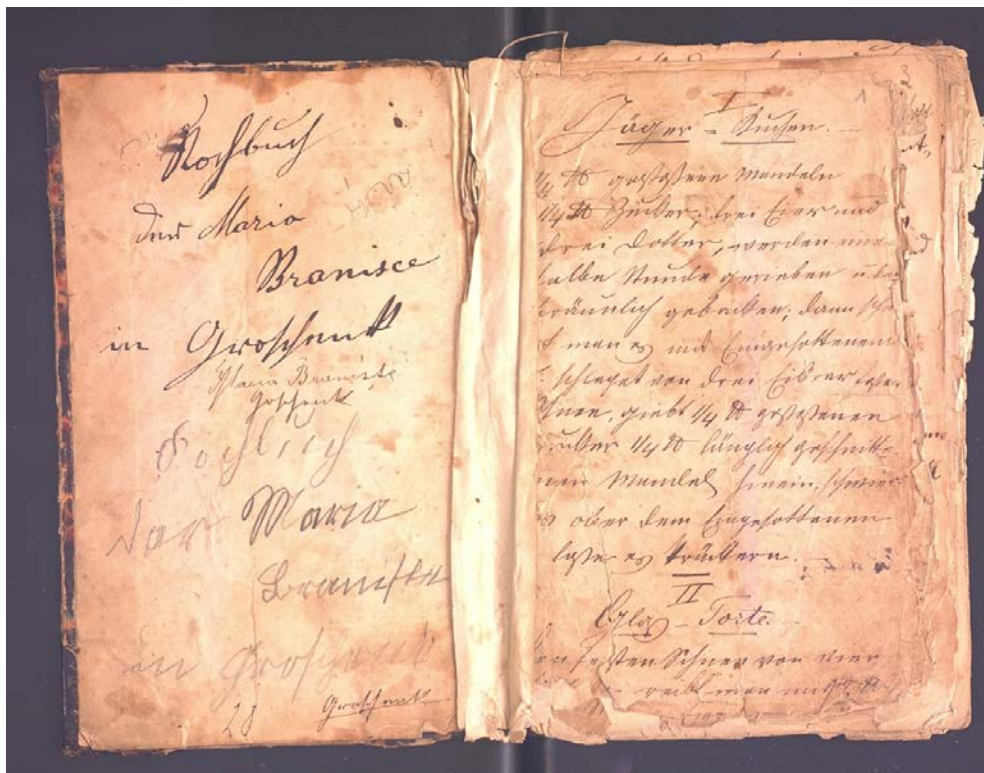 Kochbuch
der Maria
Branisce
in Groschenk
Maria Braniste
Goschenk
Kochbuch
der Maria
Braniste
in Groschenk
28
Groschenk
1
I
Jäger-Kuchen.
1/4 ℔ gestoßene Mandeln
1/4 ℔ Zucker, drei Eier und
drei Dotter, werden eine
halbe Stunde gerieben u.
bräunlich gebacken; dann
man es mit Eingesottenem
schlaget von drei Eiklar
giebt 1/4 ℔ gestoßenen
Zucker 1/4 ℔ länglich geschnitte-
nen Mandel hinein, schmier
es ober dem Eingesottenen
lasse es tröcknern.
II
Glas-Torte.
festen Schnee von vier
reibt man mit